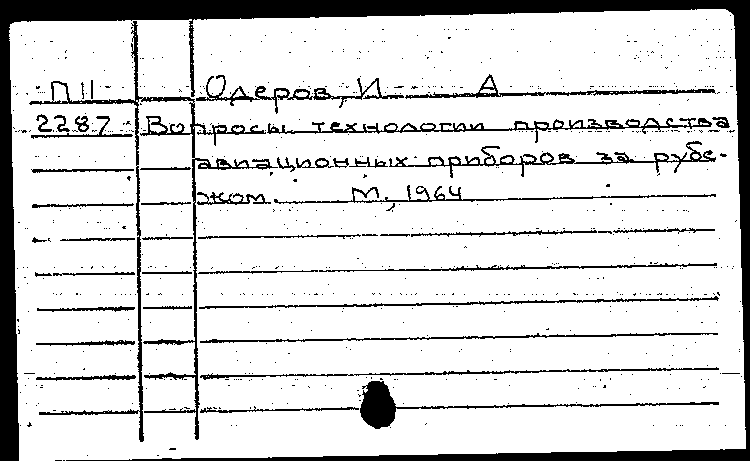 П11 Одеров, И А
2287 Вопросы технологии производства
авиационных приборов за рубе-
жом. М., 1964